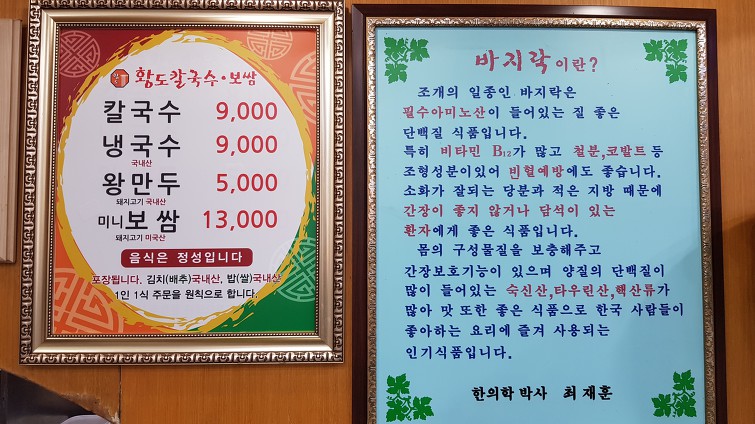 황도칼국수·보쌈
칼국수 9,000
냉국수 9,000
국내산
왕만두 5,000
돼지고기 국내산
미니보쌈 13,000
돼지고기 미국산
음식은 정성입니다
포장됩니다. 김치(배추)국내산, 밥(쌀)국내산
1인 1식 주문을 원칙으로 합니다.
바지락이란?
조개의 일종인 바지락은
필수아미노산이 들어있는 질 좋은
단백질 식품입니다.
특히 비타민 B12가 많고 철분,코발트 등
조형성분이있어 빈혈예방에도 좋습니다.
소화가 잘되는 당분과 적은 지방 때문에
간장이 좋지 않거나 담석이 있는
환자에게 좋은 식품입니다.
몸의 구성물질을 보충해주고
간장보호기능이 있으며 양질의 단백질이
많이 들어있는 숙신산,타우린산,핵산류가
많아 맛 또한 좋은 식품으로 한국 사람들이
좋아하는 요리에 즐겨 사용되는
인기식품입니다.
한의학 박사 최재훈